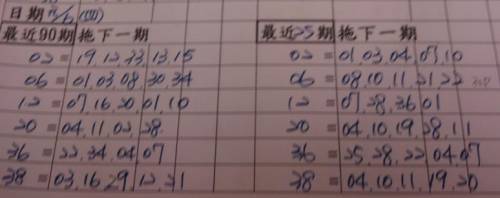 日期
最近90期拖下一期 最近25期拖下一期
02=19.12.33.13.15 02=01.03.04.07.10
06=01.03.08.30.34 06=08.10.11.21.22
12=07.16.20.01.10 12=07.28.36.01
20=04.11.02.28 20=04.10.19.28.11
36=22.34.04.07 36=25.28.22.04.07
38=03.16.29.12.21 38=04.10.11.19.20